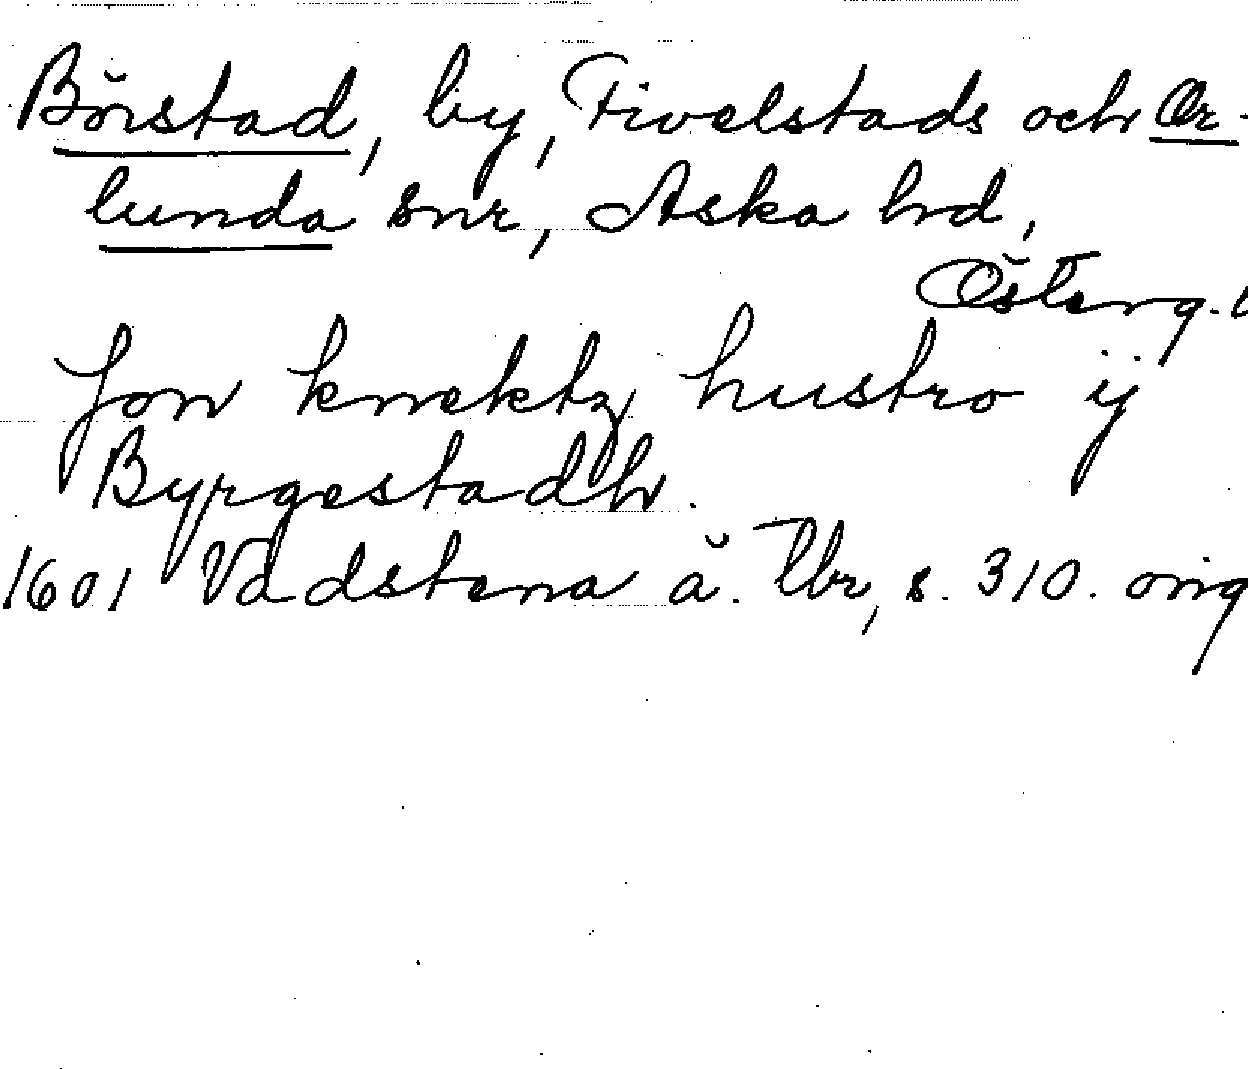 Börstad, by, Fivelstads och Or-
lunda snr, Aska hd,
Österg.
Jon knektz hustro ÿ
Byrgestadh.
1601 Vadstena ä. Tbr, s. 310. orig